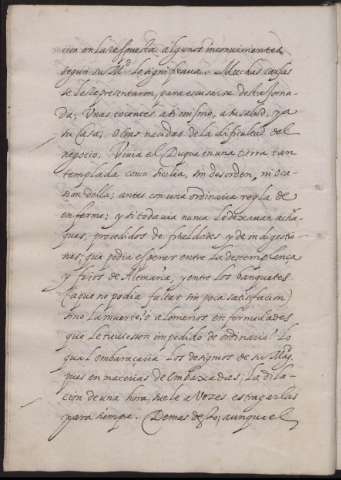 en la respuesta algunos inconvinientes,
segun su M.d le significaua. Muchas causas
se le representaron, para escusarse desta Jorna-
da; Unas tocantes a si mismo, a su salud, y a
su Casa; Otras nacidas de la dificultad del
negocio. Viuia el Duque en una tierra tan
templada como Sicilia, sin desorden, ni oca-
sion della; antes con una ordinaria regla de
enfermo; y si todauia nunca le dexauan acha-
ques, procedidos de frialdades, y de indigestio-
nes; que podia esperar entre la destemplança
y frios de Alemania, y entre los banquetes
(a que no podia faltar sin poca satisfacion)
sino la muerte; o a lo menos enfermedades
que le tuuiessen impedido de ordinario? Lo
qual embaraçaria los designos de su Mag.d
pues en materias de Embaxadas; La dila-
cion de una hora, suele a Vozes estragarlas
para siempre. Demas desto, aunque el